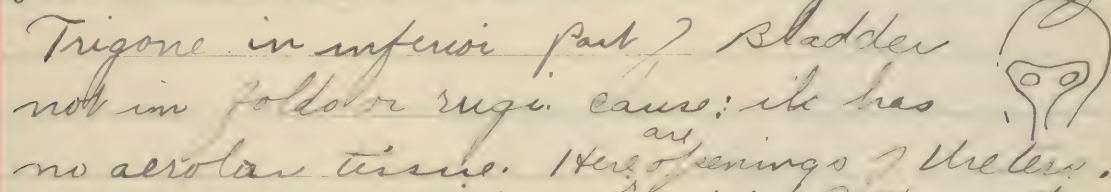 Trigone in inferior part of Bladder
not in folds or rugi. cause: it has
no aerolar tissue. Here are openings of Ureters.